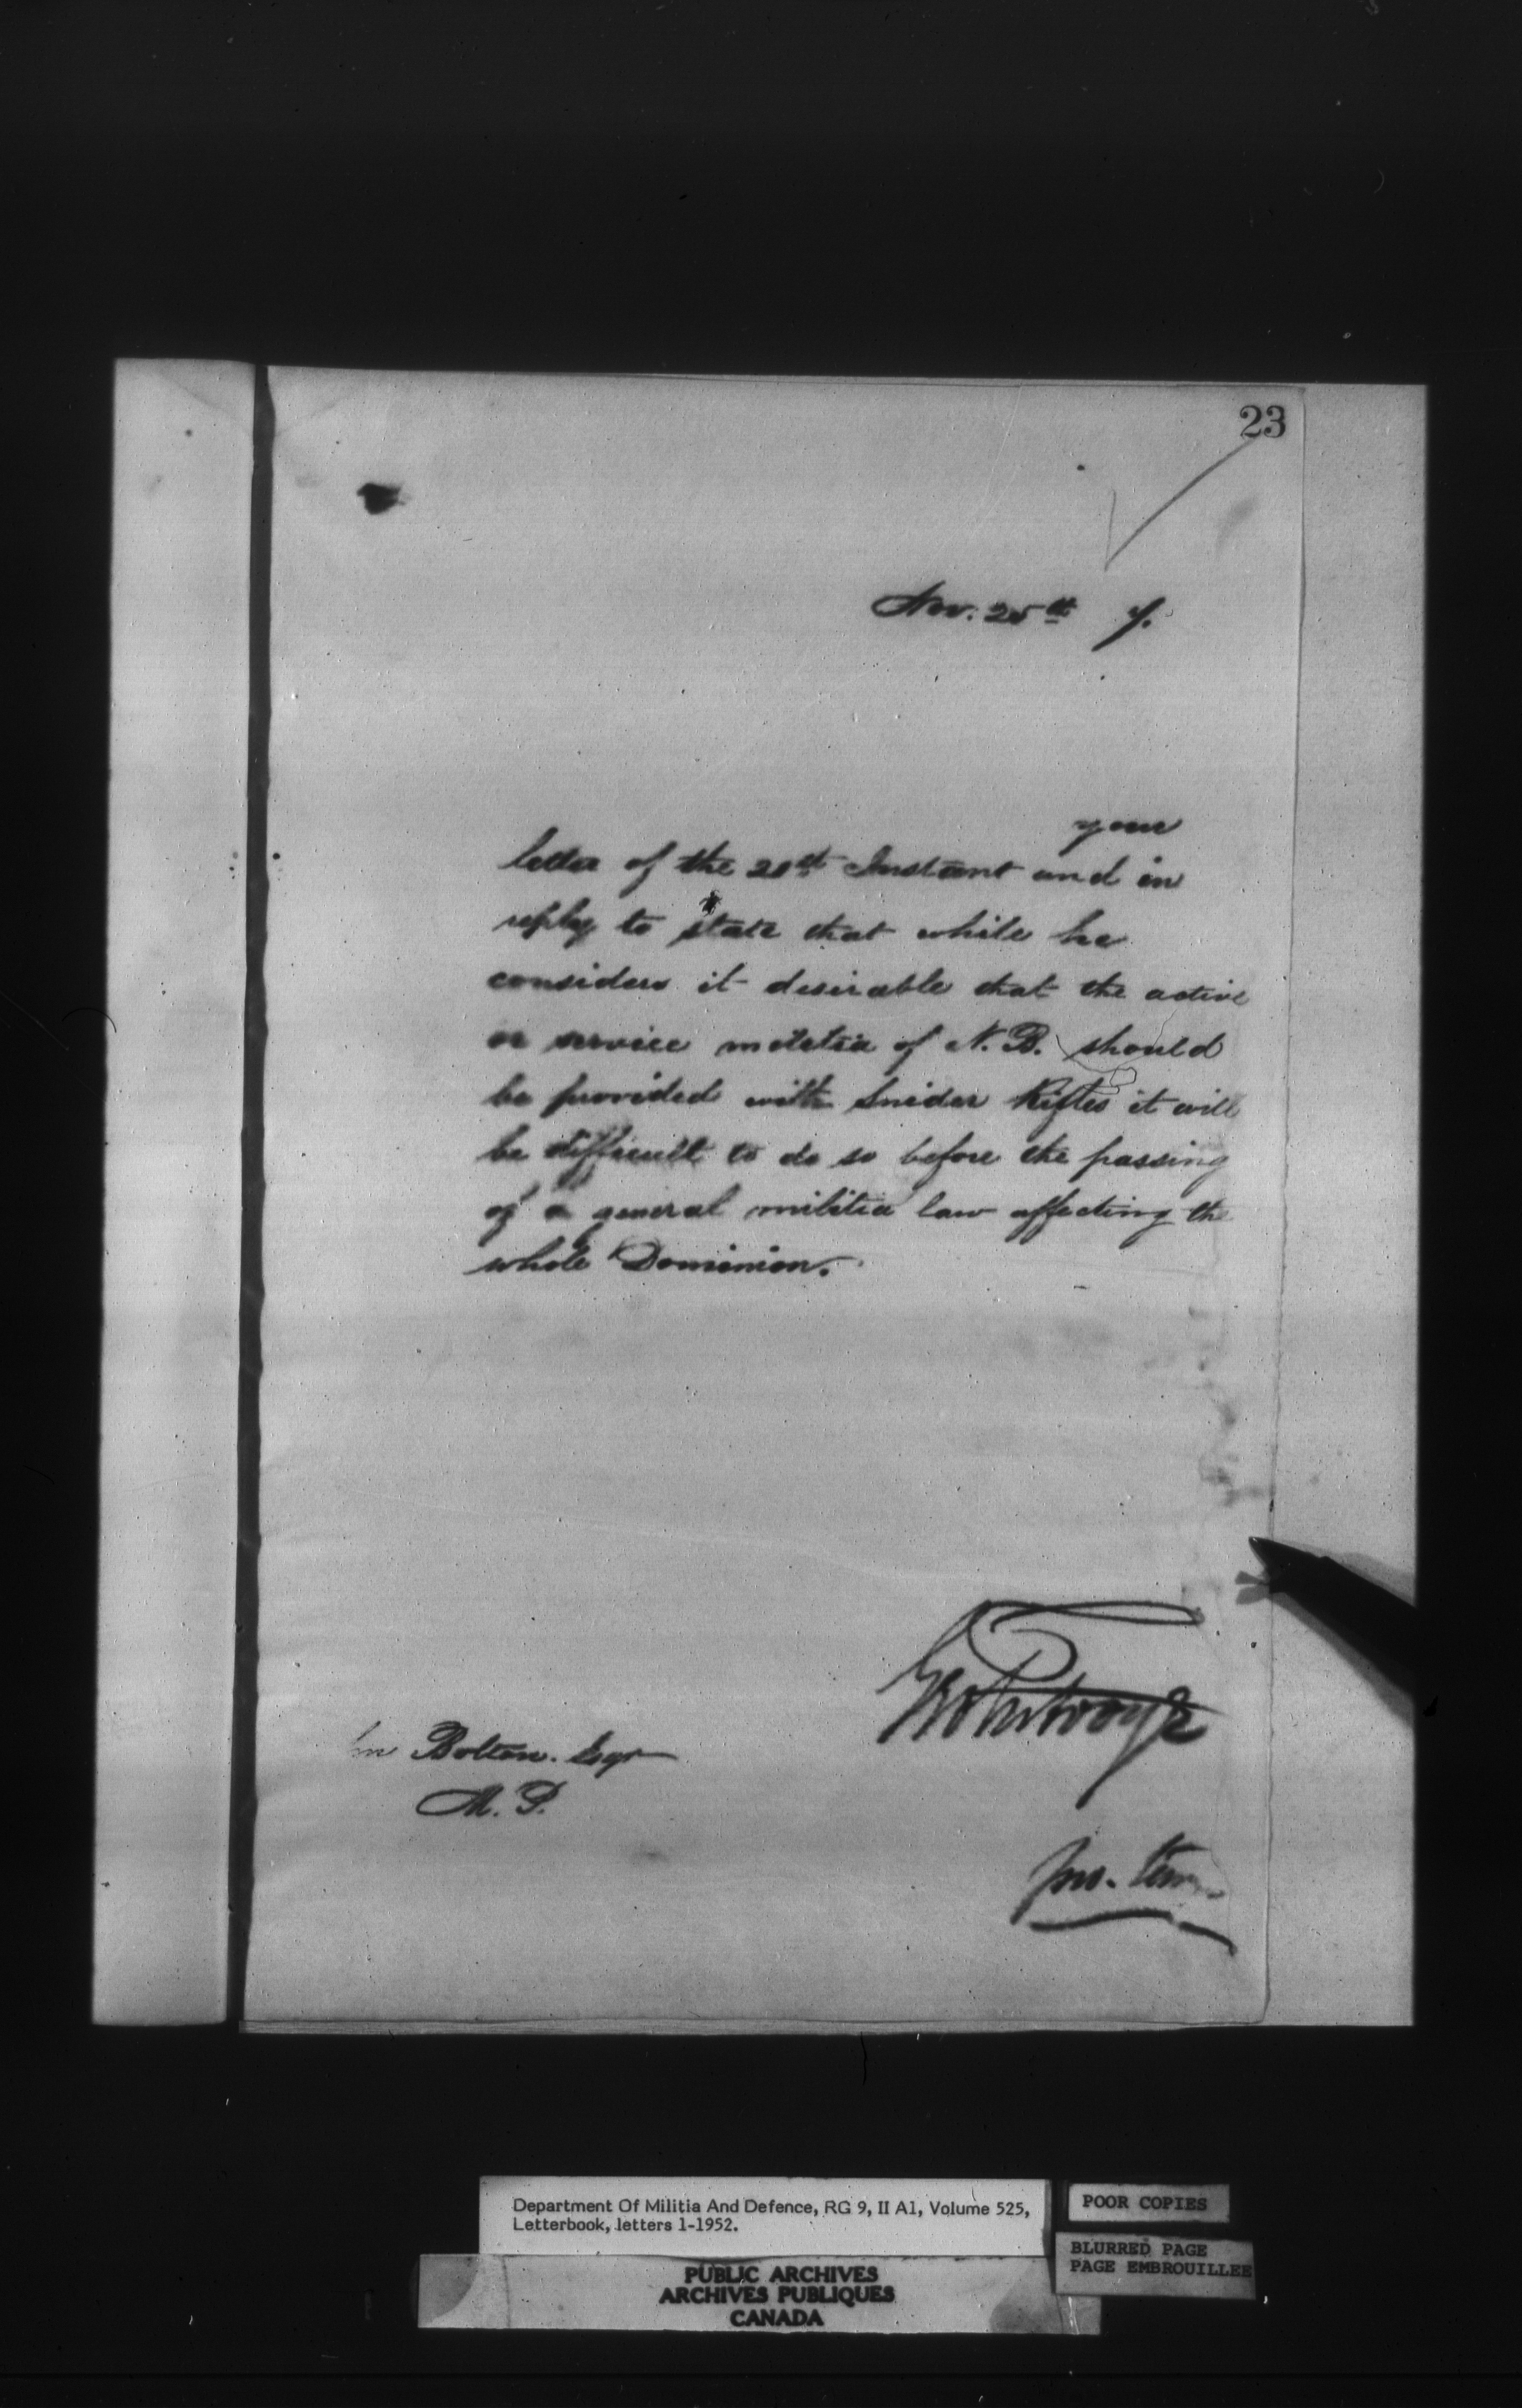 23
Nov. 25th 7.
your
letter of the 21st Instant and in
reply to state that while he
considers it desirable that the active
or service militia of N. B. should
be provided with Snider Rifles it will
be difficult to do so before the passing
of a general militia law affecting the
whole Dominion.
Bolton. Esqr
M. P.
pro. tem
Department Of Militia And Defence, RG 9, II A1, Volume 525,
Letterbook, letters 1-1952.
POOR COPIES
BLURRED PAGE
PAGE EMBROUILLEE
PUBLIC ARCHIVES
ARCHIVES PUBLIQUES
CANADA